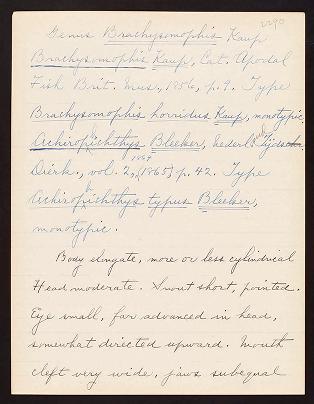 2290
Genus Brachysomophis Kaup
Brachysomophis Kaup, Cat. Apodal
Fish Brit. Mus., 1856, p. 9. Type
Brachysomophis horridus Kaup, monotypic.
Achirophichthys Bleeker, Nederl. Tijdsch.
Dierk., vol. 2, (1865) p. 42. Type
1864
Achirophichthys typus Bleeker,
monotypic.
Body elngate, more or less cylindrical
Head moderate. Snout short, pointed.
Eye small, far advanced in head,
somewhat directed upward. Mouth
cleft very wide, jaws subequal